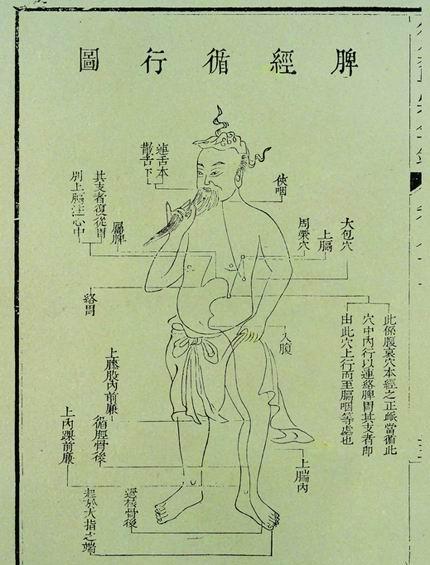 脾經循行圖
俠咽
連舌本
散舌下
大包穴
上膈
周榮穴
屬脾
其支者復從胃
別上膈注心中
絡胃
此係腹哀穴本經之正脈當循此
穴中內行以連絡脾胃其支者即
由此穴上行而至膈咽等處也
入腹
上膝股內前廉
循脛骨後
上內踝前廉
上腨內
過核骨後
起於大指之端